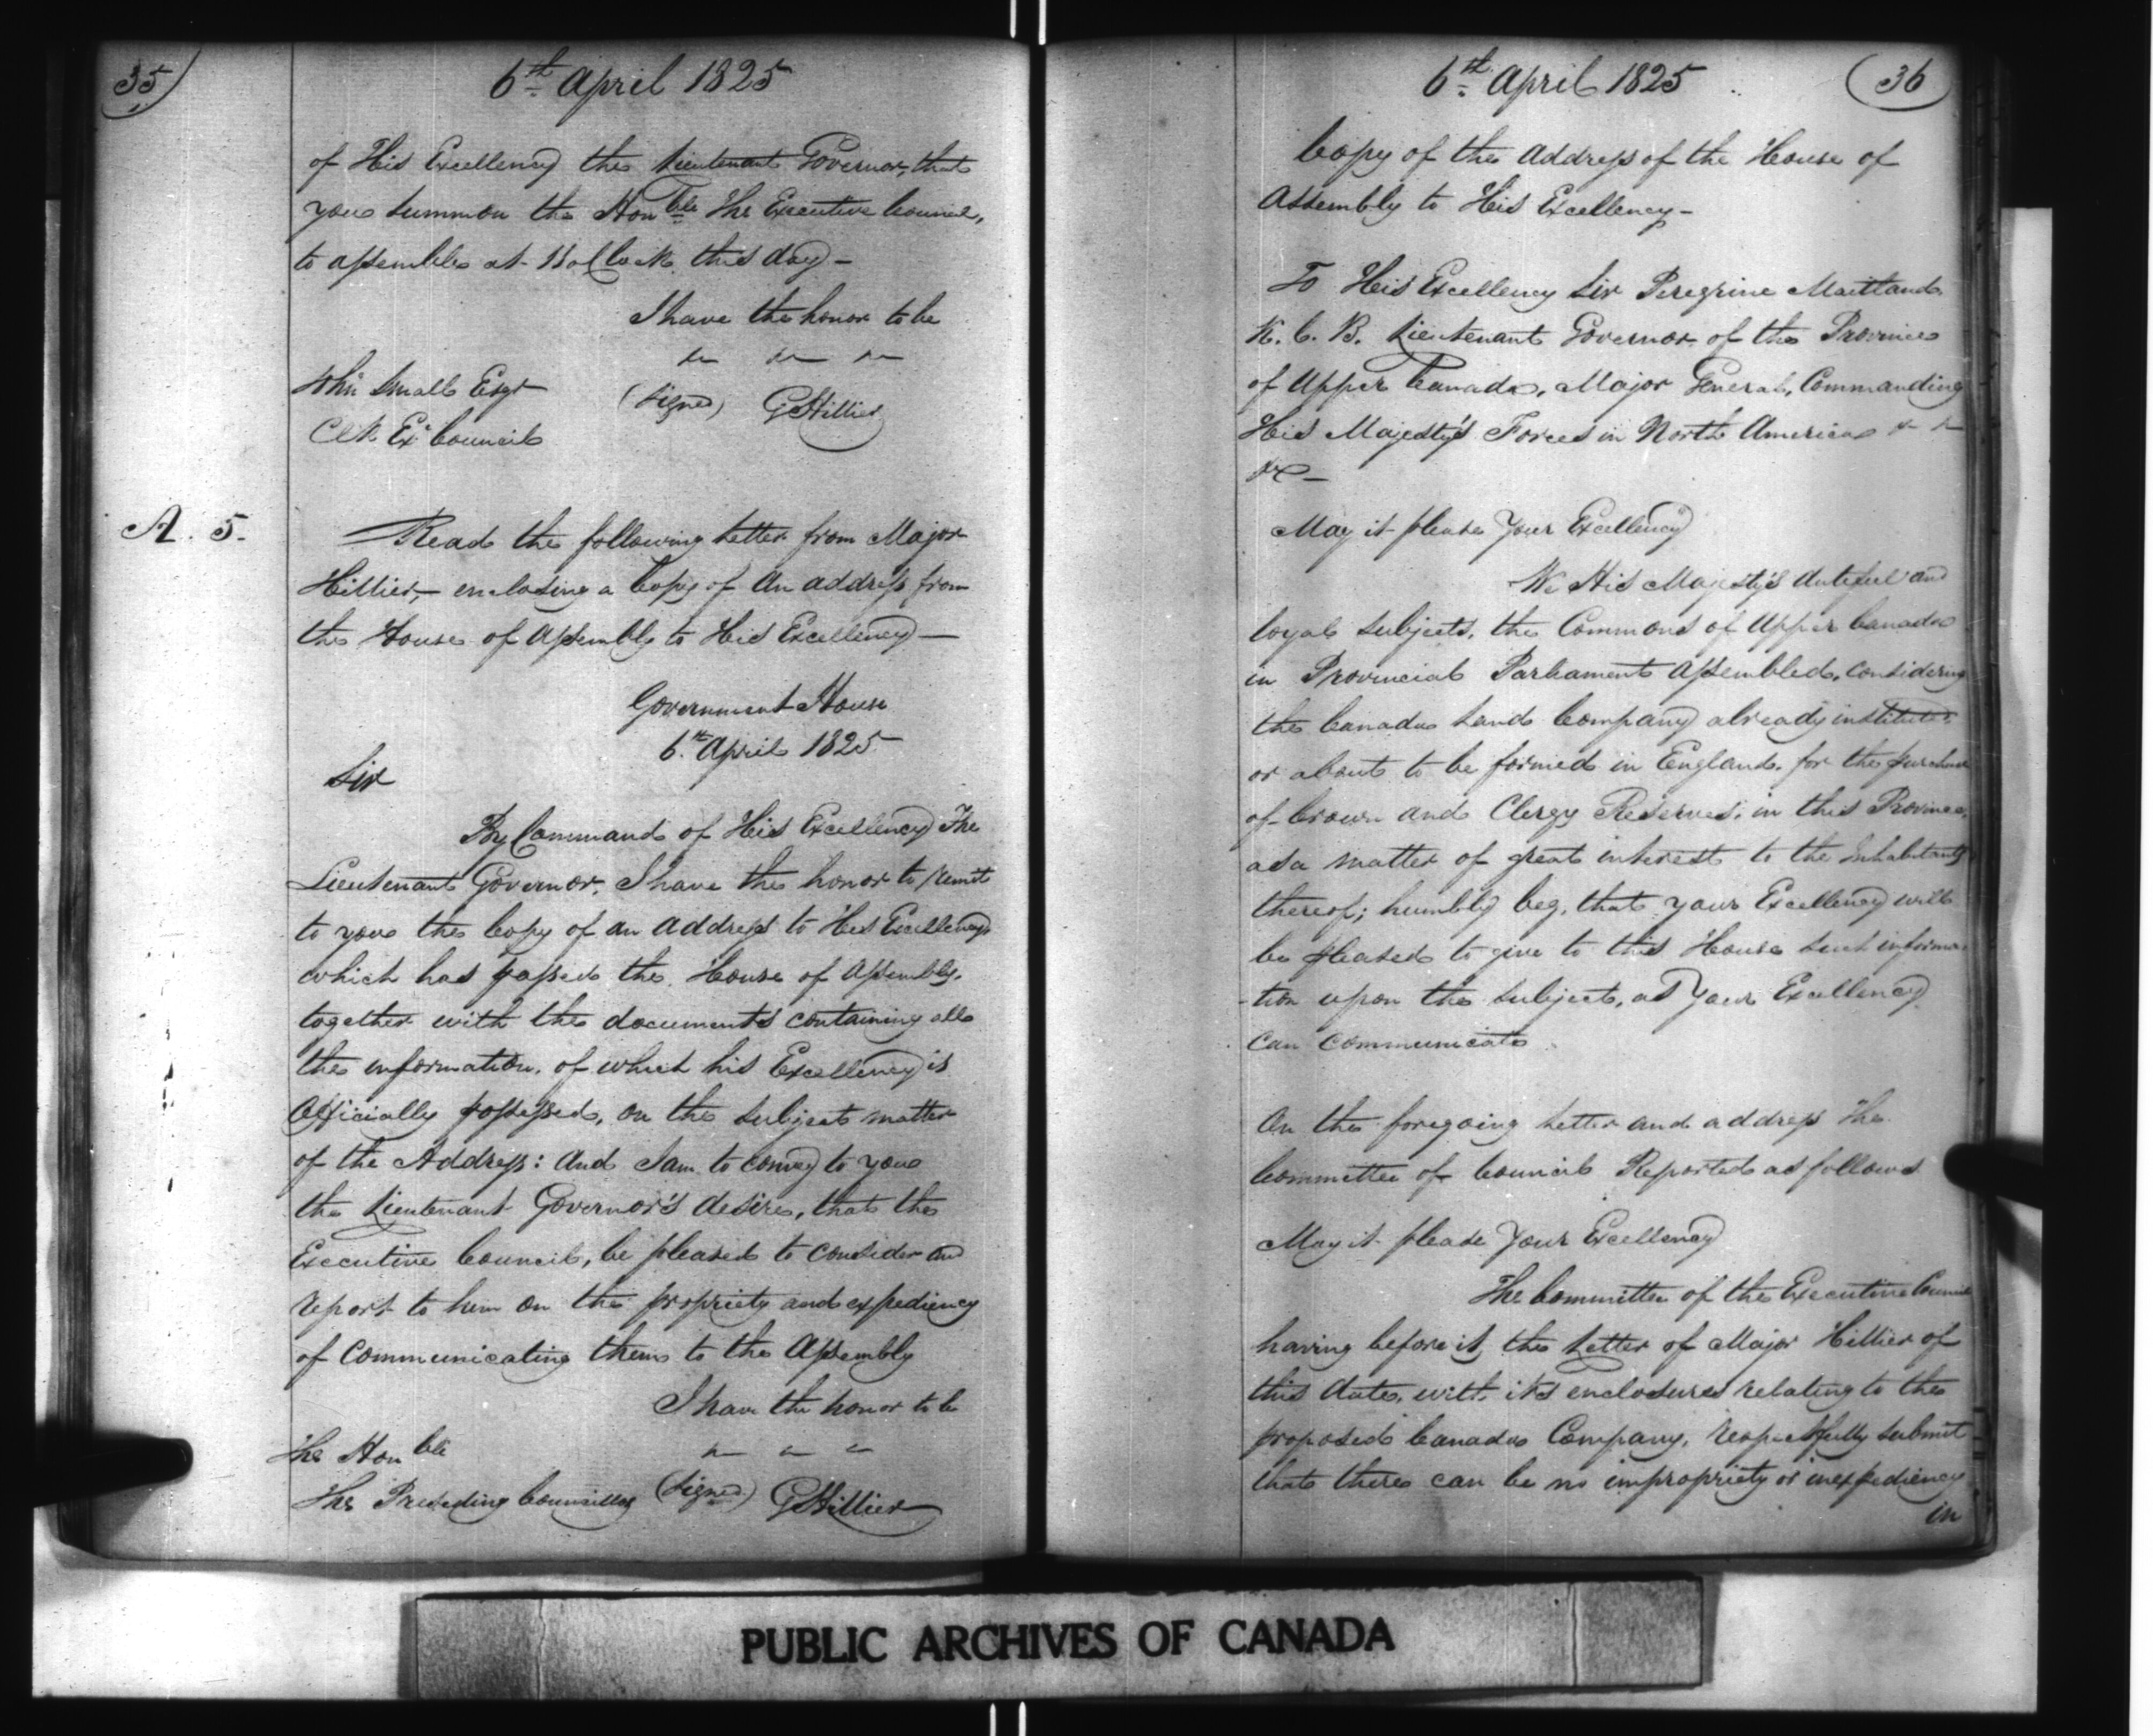 35
6th April 1825
of His Excellency the Lieutenant Governor, that
you summon the Honble The Executive Council,
to assemble at 11 oClock this day –
I have the honor to be
&c &c &c
John Small Esqr
(signed) G Hillier
Clk Ex. Council
A. 5.
Read the following letter from Major
Hillier, – enclosing a Copy of An address from
the House of Assembly to His Excellency –
Government House
6th April 1825
Sir
By Command of His Excellency The
Lieutenant Governor, I have the honor to remit
to you the Copy of an Address to His Excellency,
which has passed the House of Assembly,
together with the documents containing all
the information, of which his Excellency is
Officially possessed, on the subject matter
of the Address: And I am to convey to you
the Lieutenant Governor's desire, that the
Executive Council, be pleased to consider and
report to him on the propriety and expediency
of Communicating them to the Assembly
I have the honor to be
&c &c &c
The Honble
The Presiding Councillor (Signed) G Hillier
6th April 1825
36
Copy of the Address of the House of
Assembly to His Excellency –
To His Excellency Sir Peregrine Maitland
K. C. B. Lieutenant Governor of the Province
of Upper Canada, Major General, Commanding
His Majesty's Forces in North America &c &c
&c –
May it please Your Excellency
We His Majesty's dutiful and
loyal subjects, the Commons of Upper Canada
in Provincial Parliament Assembled, considering
the Canada Land Company already instituted,
or about to be formed in England, for the purchase
of Crown and Clergy Reserves, in this Province,
as a matter of great interest to the Inhabitants
thereof; humbly beg, that your Excellency will
be pleased to give to this House such informa-
-tion upon the subject, as Your Excellency
can communicate
On the foregoing letter and address The
Committee of Council Reported as follows
May it please Your Excellency
The Committee of the Executive Council
having before it, the Letter of Major Hillier of
this date, with its enclosures relating to the
proposed Canada Company, respectfully submit
that there can be no impropriety or inexpediency
in
PUBLIC ARCHIVES OF CANADA